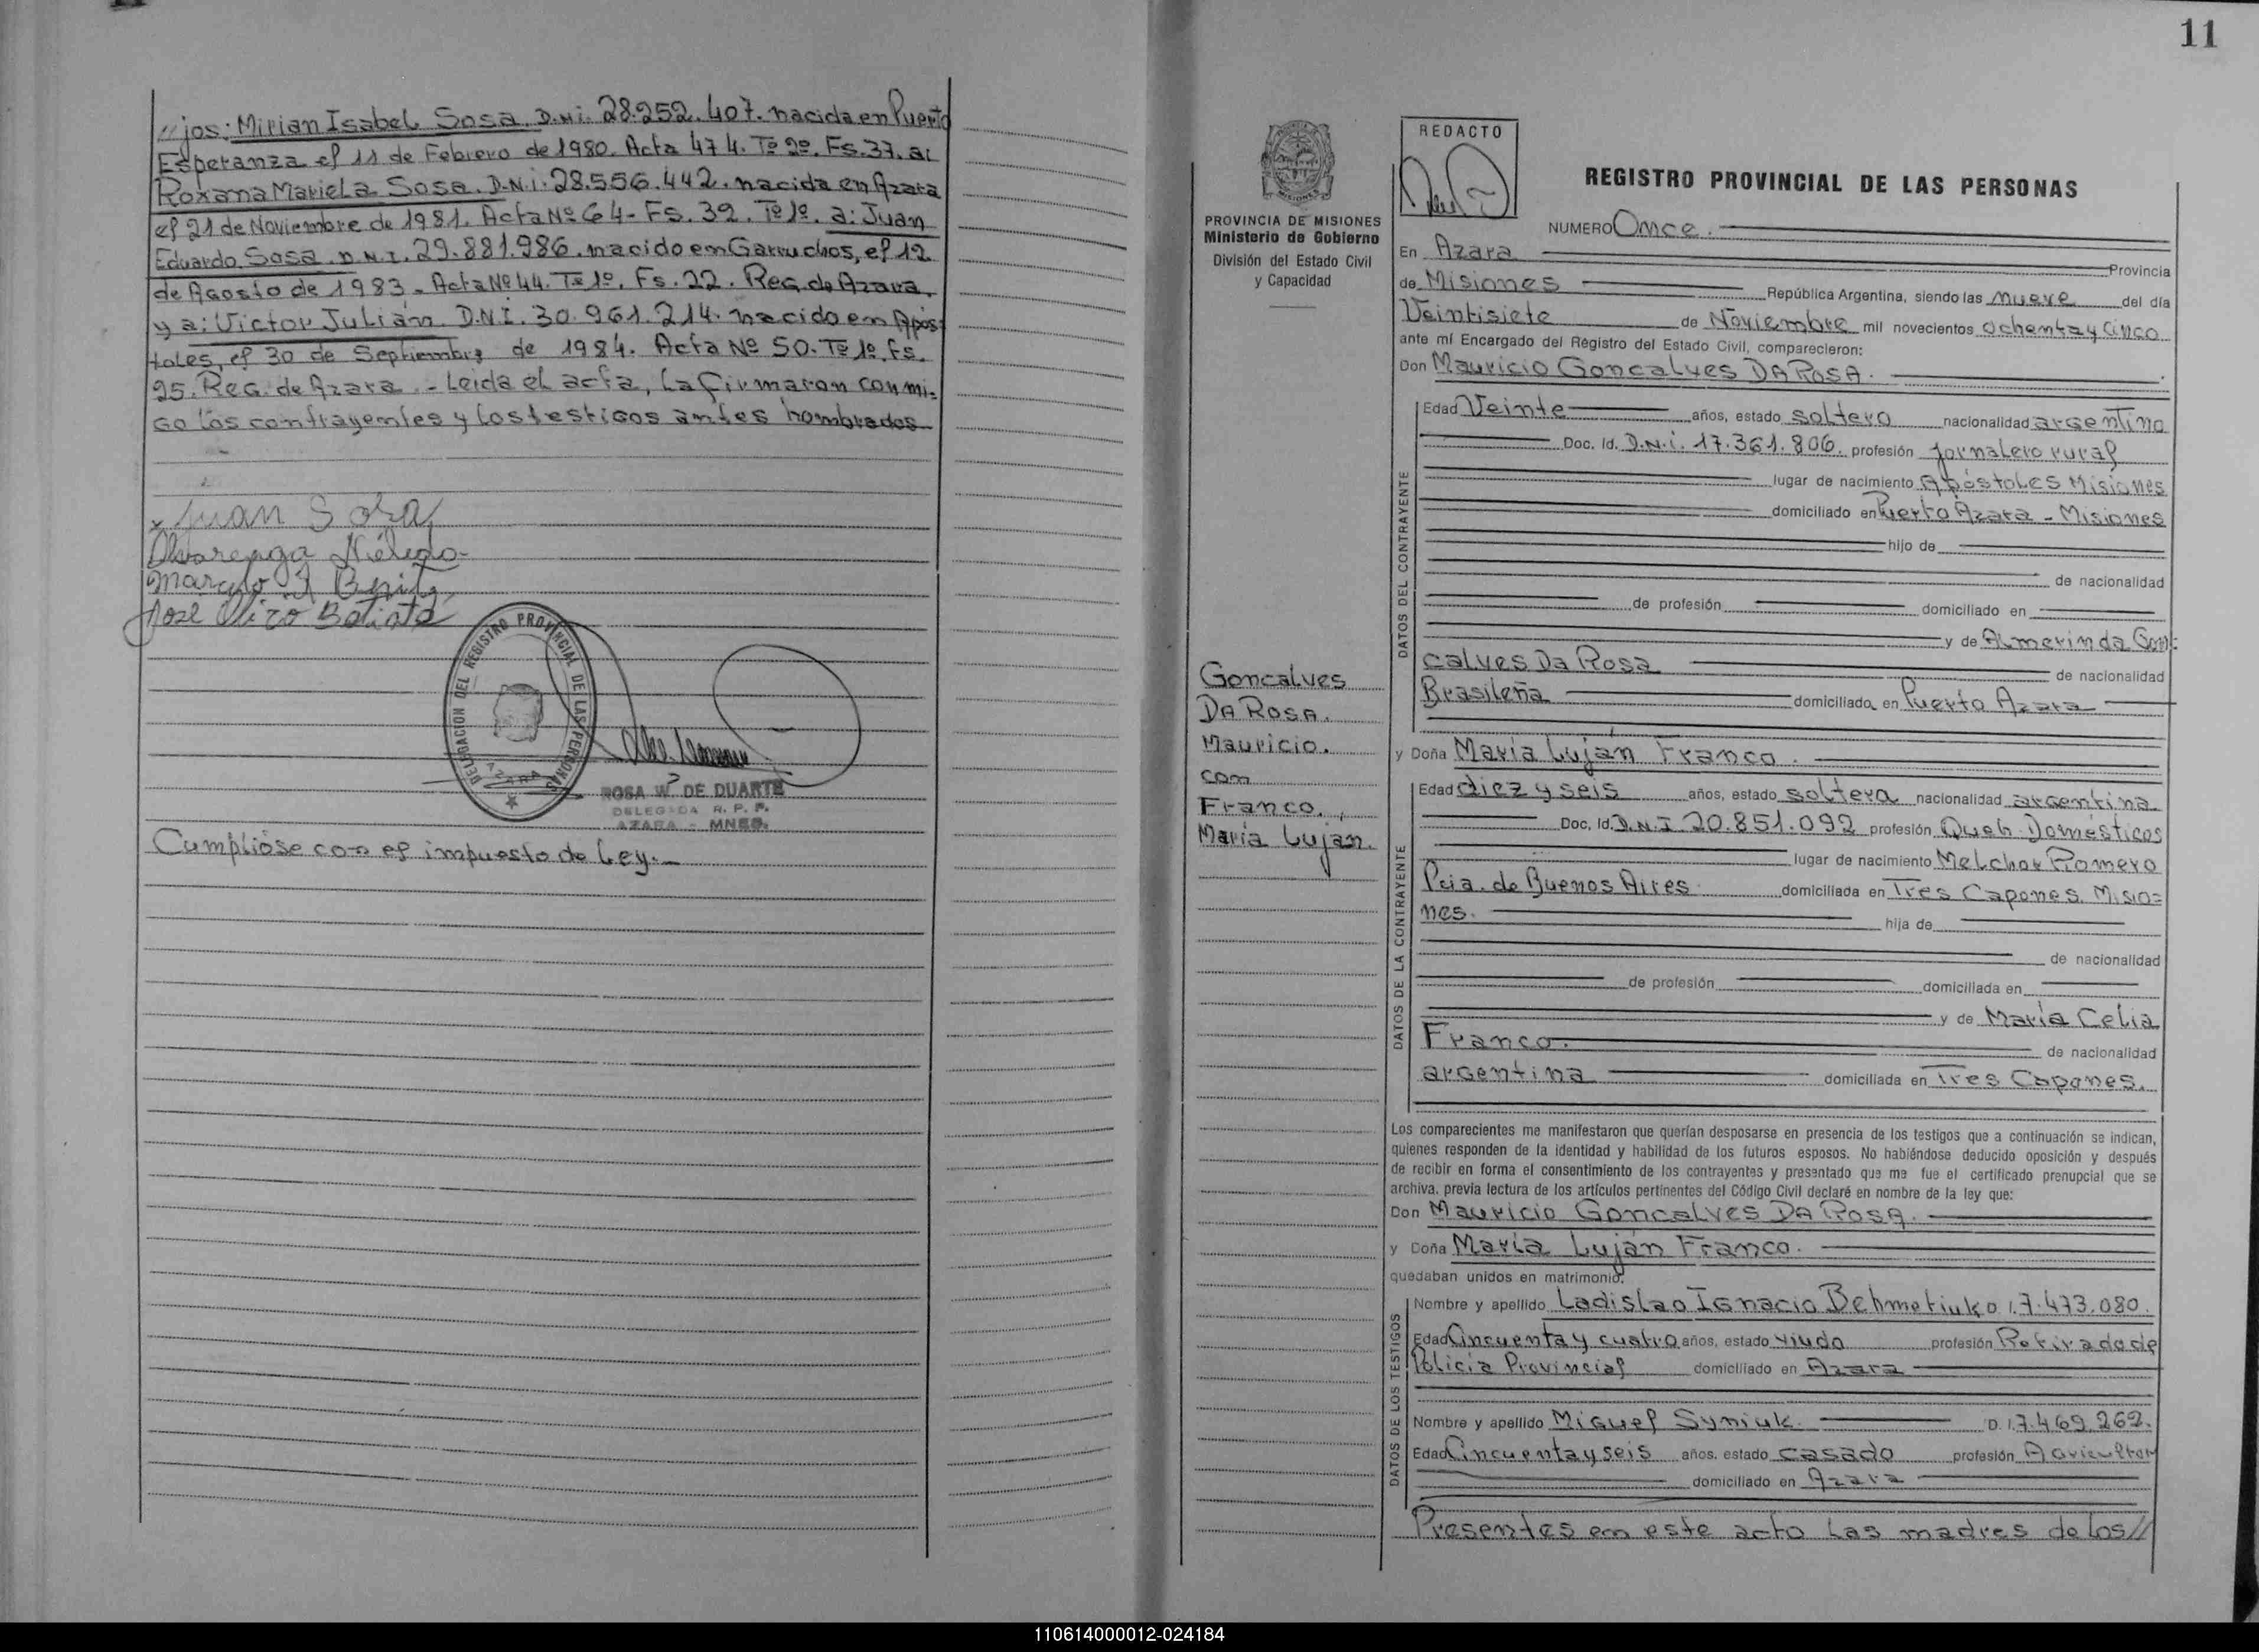 //jos: Mirian Isabel Sosa. D.N.i. 28.252.407. nacida en Puerto
Esperanza el 11 de Febrero de 1980. Acta 474. Tº 2º. Fs. 37. a:
Roxana Mariela Sosa. D.N.i. 28.556.442. nacida en Azara
el 21 de Noviembre de 1981. Acta Nº 64- Fs. 32. Tº 1º. a: Juan
Eduardo Sosa. D.N.I. 29.881.986. nacido en Garruchos, el 12
de Agosto de 1983. Acta Nº 44. Tº 1º. Fs. 22. Reg. de Azara.
y a: Victor Julián. D.N.I. 30.961.214. nacido en Após-
toles, el 30 de Septiembre de 1984. Acta Nº 50. Tº 1º. Fs.
25. Reg. de Azara. - Leida el acta, la firmaron conmi-
go los contrayentes y los testigos antes nombrados
x Juan Sosa
Alvarenga Nélida
Marcelo Benitez
Jose Batista
DELEGACION DEL REGISTRO PROVINCIAL DE LAS PERSONAS
AZARA
ROSA W. DE DUARTE
DELEGADA R. P. P.
AZARA - MNES.
Cumplióse con el impuesto de Ley.-
11
REDACTO
PROVINCIA DE MISIONES
Ministerio de Gobierno
División del Estado Civil
y Capacidad
Goncalves
DA ROSA.
Mauricio.
con
Franco,
María Luján.
REGISTRO PROVINCIAL DE LAS PERSONAS
NUMERO Once.
En Azara Provincia
de Misiones República Argentina, siendo las nueve del día
Veintisiete de Noviembre mil novecientos ochenta y cinco
ante mí Encargado del Registro del Estado Civil, comparecieron:
Don Mauricio Goncalves DA ROSA.
DATOS DEL CONTRAYENTE
Edad Veinte años, estado soltero nacionalidad argentino
Doc. Id. D.N.i. 17.361.806. profesión jornalero rural
lugar de nacimiento Apóstoles Misiones
domiciliado en Puerto Azara - Misiones
hijo de
de nacionalidad
de profesión domiciliado en
y de Almerinda Gon-
calves Da Rosa de nacionalidad
Brasileña domiciliada en Puerto Azara
y Doña María Luján Franco.
DATOS DE LA CONTRAYENTE
Edad diez y seis años, estado soltera nacionalidad argentina
Doc. Id. D.N.I 20.851.092 profesión Queh. Domésticos
lugar de nacimiento Melchor Romero
Pcia. de Buenos Aires domiciliada en Tres Capones. Misio=
nes. hija de
de nacionalidad
de profesión domiciliada en
y de María Celia
Franco. de nacionalidad
argentina domiciliada en Tres Capones.
Los comparecientes me manifestaron que querían desposarse en presencia de los testigos que a continuación se indican,
quienes responden de la identidad y habilidad de los futuros esposos. No habiéndose deducido oposición y después
de recibir en forma el consentimiento de los contrayentes y presentado que me fue el certificado prenupcial que se
archiva, previa lectura de los artículos pertinentes del Código Civil declaré en nombre de la ley que:
Don Mauricio Goncalves DA ROSA.
y Doña María Luján Franco.
quedaban unidos en matrimonio.
DATOS DE LOS TESTIGOS
Nombre y apellido Ladislao Ignacio Behmetiuk D.I. 7.473.080.
Edad Cincuenta y cuatro años, estado viudo profesión Retirado de
Policia Provincial domiciliado en Azara
Nombre y apellido Miguel Syniuk. D.I. 7.469.262.
Edad Cincuenta y seis años, estado casado profesión Agricultor
domiciliado en Azara
Presentes en este acto las madres de los//
110614000012-024184